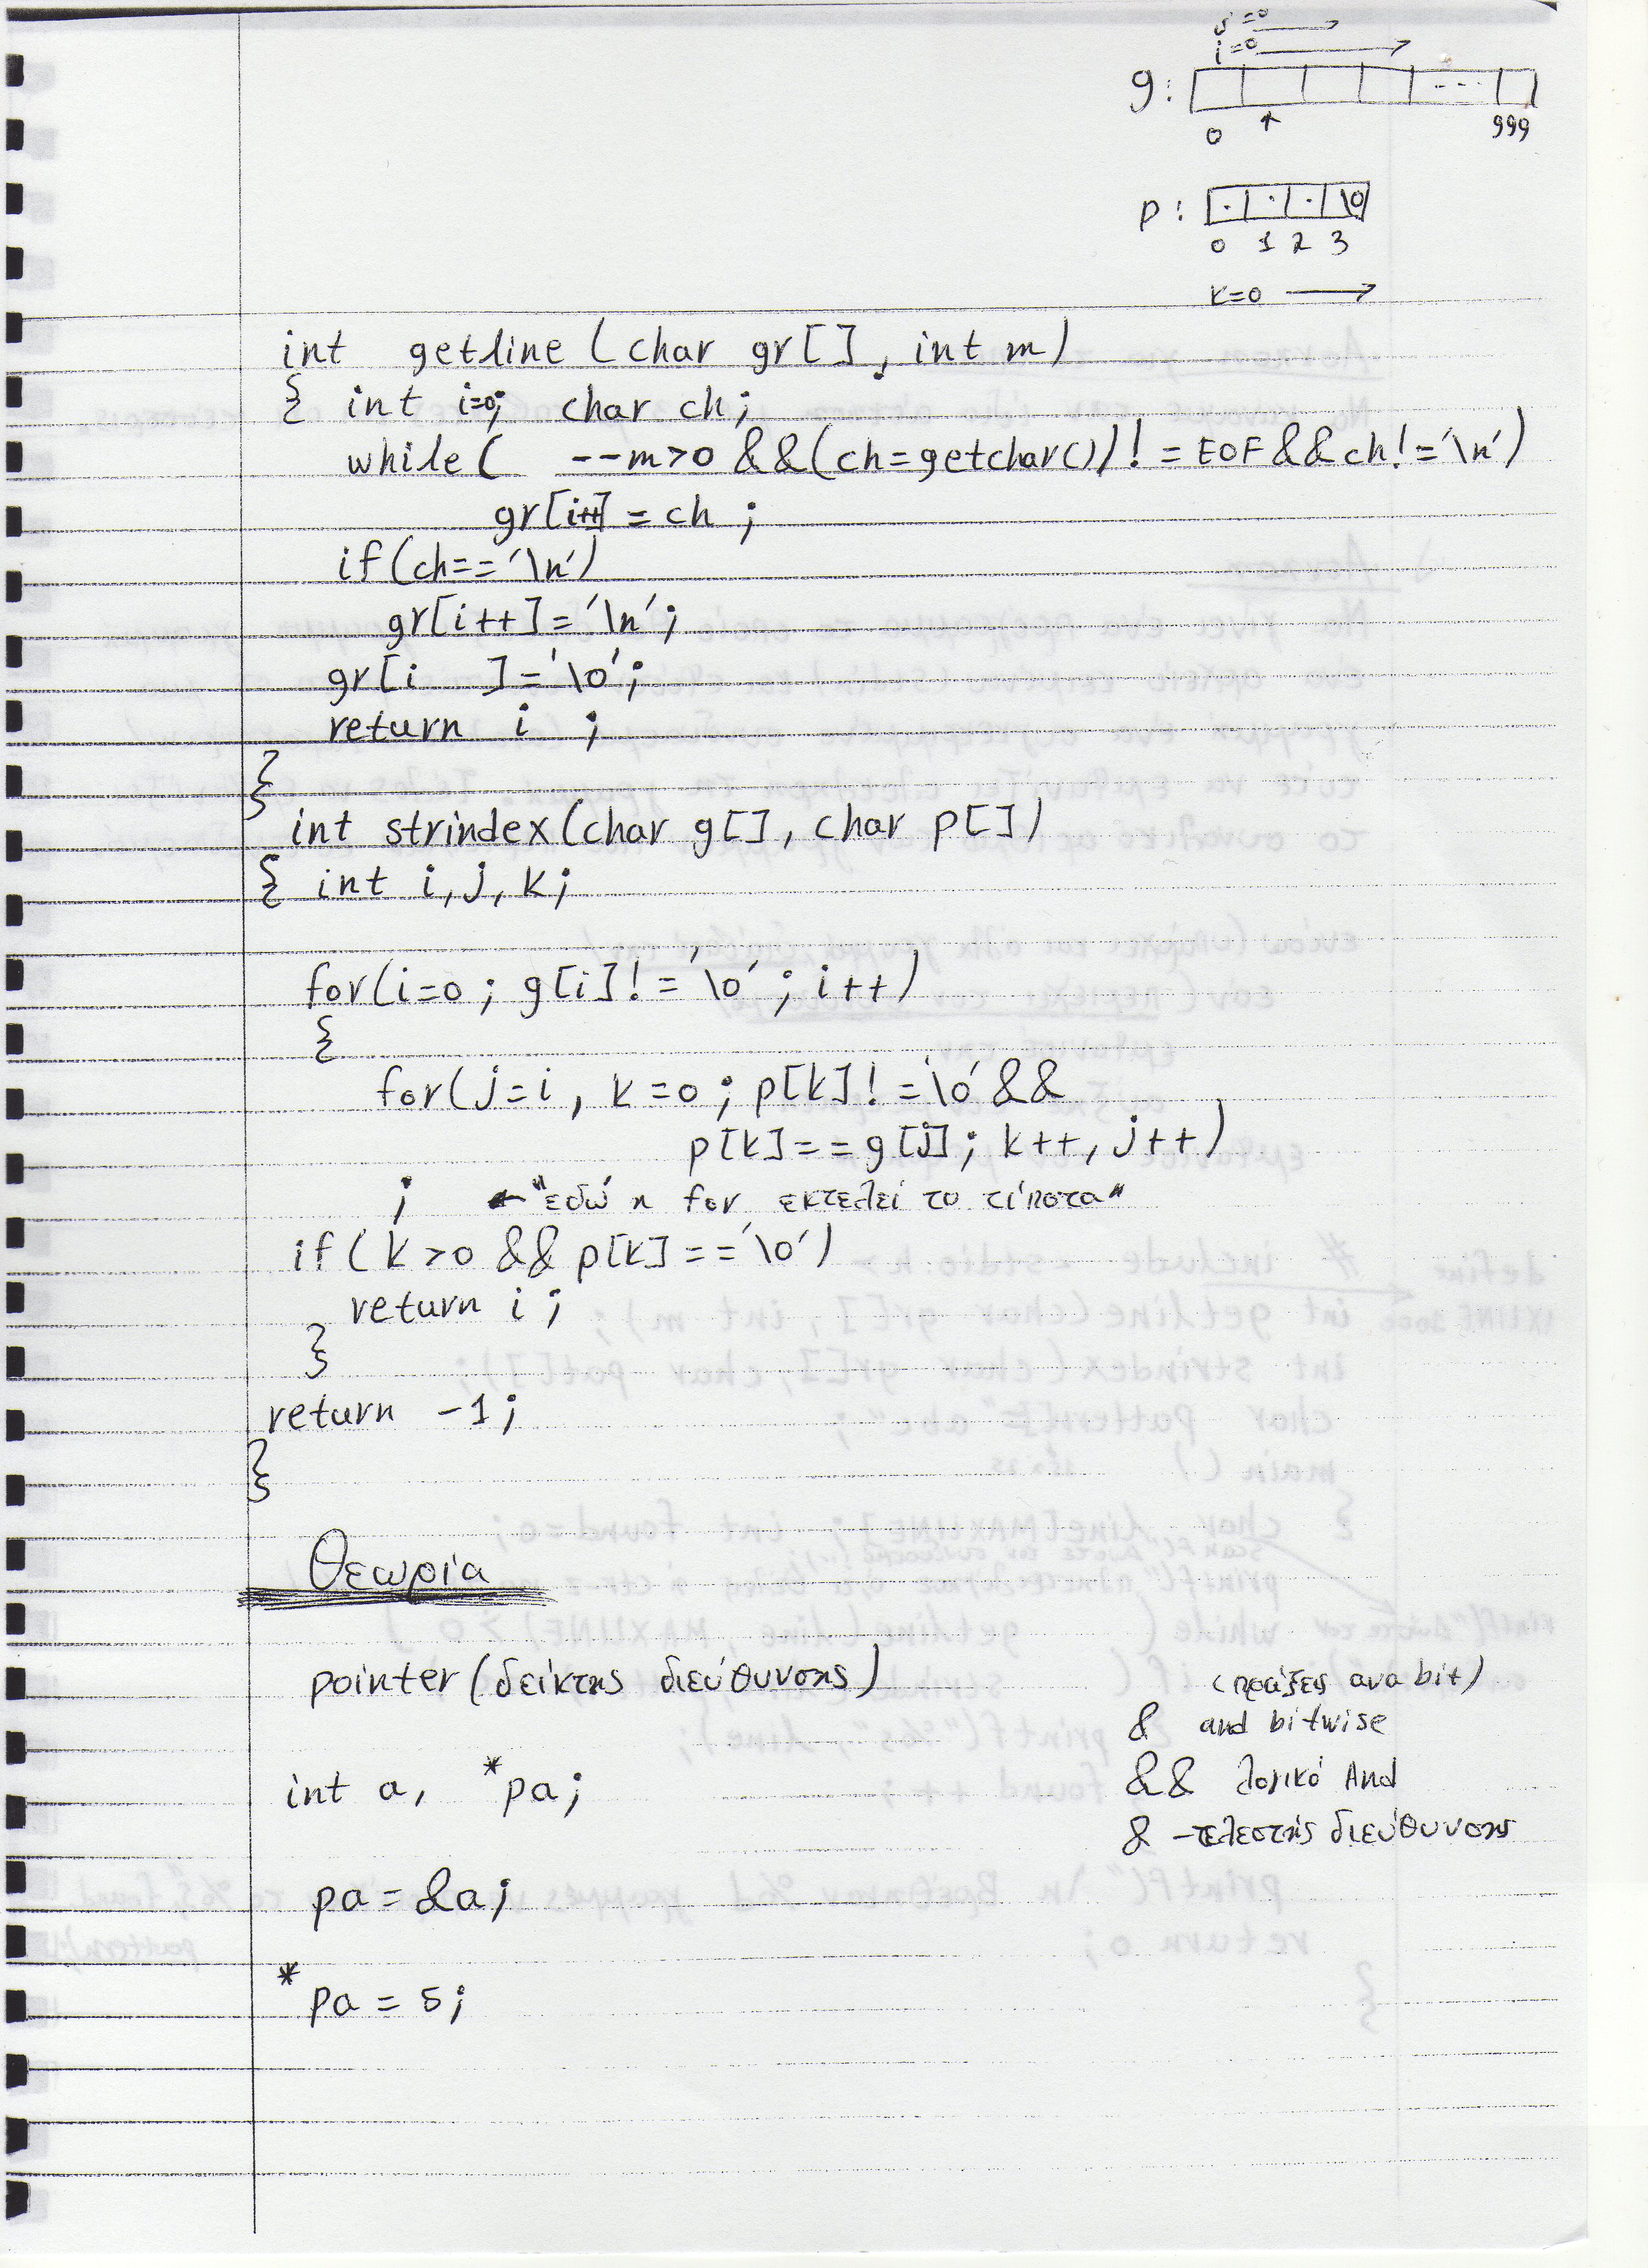 j=0
i=0
g:
---
0
999
p: . . . \0
0 1 2 3
k=0
int getline (char gr[], int m)
{ int i=0; char ch;
while( --m>0 &&(ch=getchar())!=EOF&&ch!='\n')
gr[i++]=ch;
if(ch=='\n')
gr[i++]='\n';
gr[i ]='\0';
return i ;
}
int strindex(char g[], char p[])
{ int i,j,k;
for(i=0; g[i]!='\0'; i++)
{
for(j=i, k=0; p[k]!='\0'&&
p[k]==g[j]; k++, j++)
; ← "εδώ η for εκτελεί το τίποτα"
if( k>0 && p[k]=='\0')
return i;
}
return -1;
}
Θεωρία
pointer (δείκτης διεύθυνσης)
(πράξεις ανα bit)
& and bitwise
int a, *pa;
&& λογικό And
& -τελεστής διεύθυνσης
pa=&a;
*pa=5;